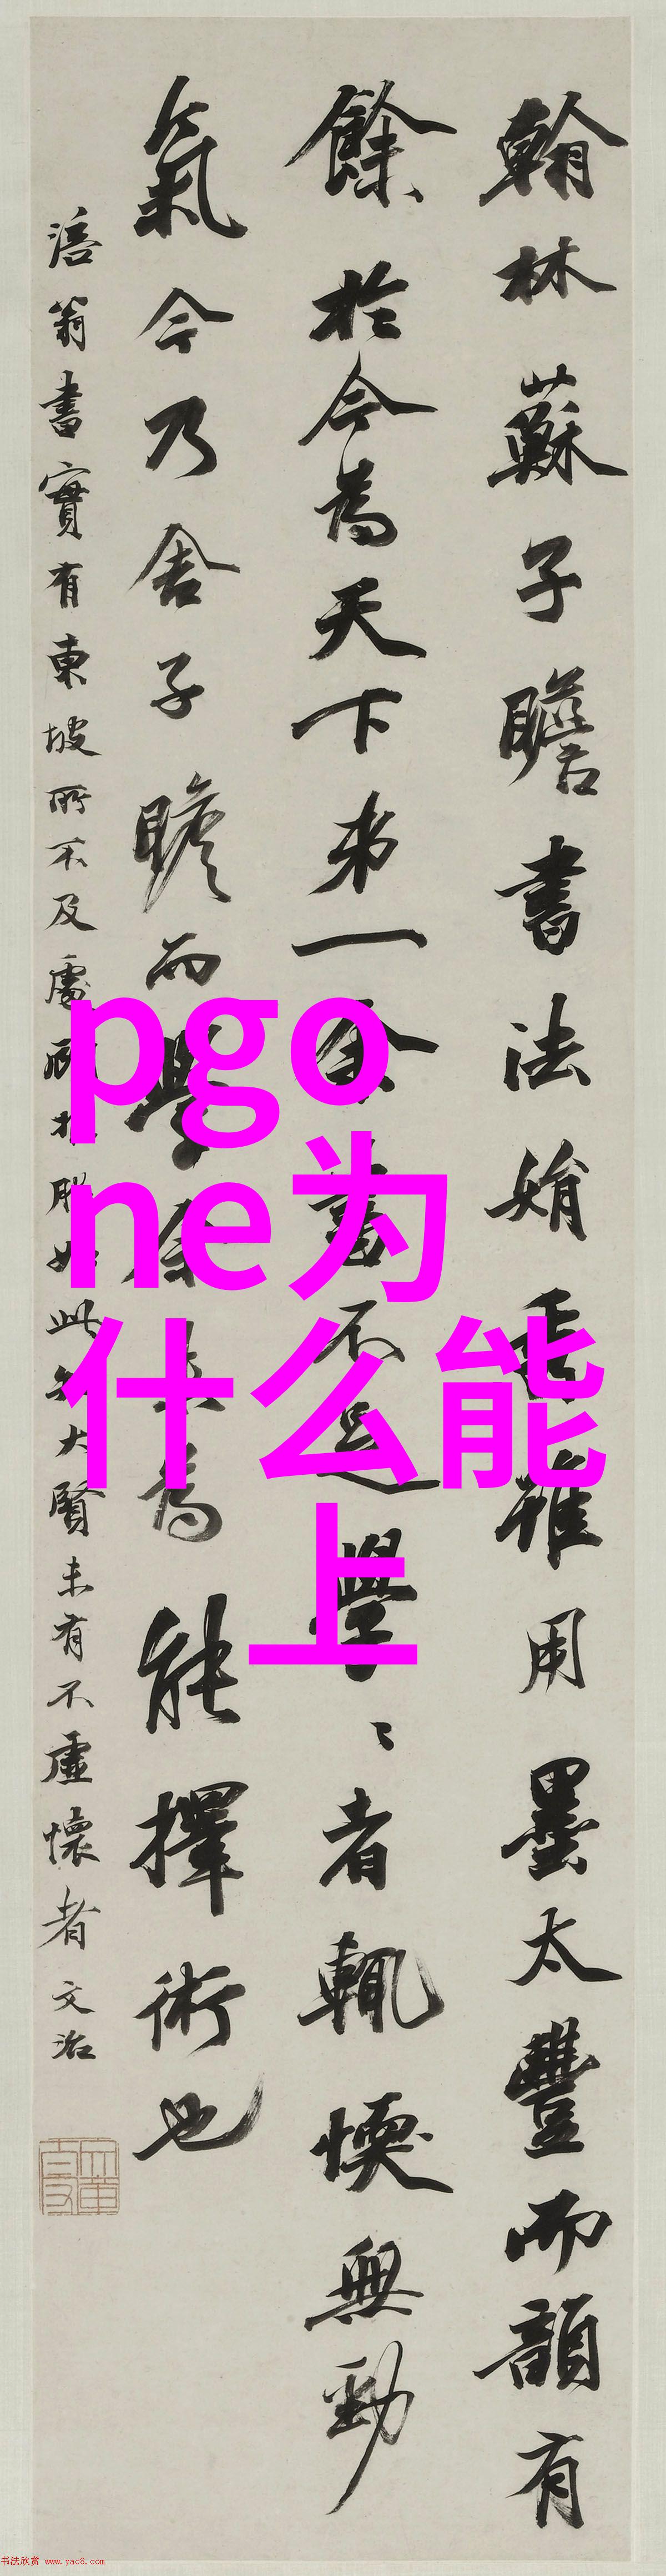 翰林蘇子瞻書法娟秀雖用墨太豐而韻有
餘於今為天下第一余書不足學學者輒愞無勁
氣今乃舍子瞻而學余未為能擇術也
涪翁書實有東坡所不及處而推服如此知大賢未有不虛懷者文治
pgo
ne为
什么能
上
书法欣赏 www.yac8.com